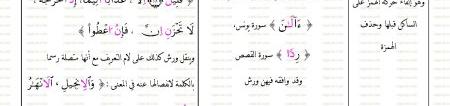 وهو إلقاء حركة الهمز على
الساكن قبلها وحذف
الهمزة
﴿ ءَآلَٰنَ ﴾ سورة يونس،
﴿ رِدًا ﴾ سورة القصص
وقد وافقه فيهن ورش
لَا تَحْزَنِ انَّ ، فَإِنُ اعْطُواْ ﴾
وينقل ورش كذلك على لام التعريف مع أنها متصلة رسما
بالكلمة لانفصالها عنه في المعنى : ﴿ وَالِانجِيلَ ، الَانْهَٰرُ